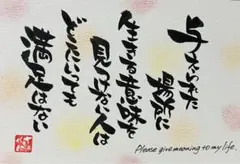 与えられた
場所に
生きる意味を
見つけない人は
どこにいっても
満足はない
Please give meaning to my life.